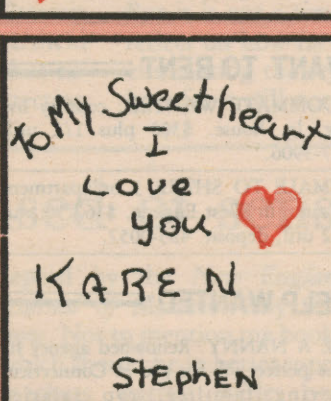 to My Sweetheart
I
Love
you
KAREN
StepHEN